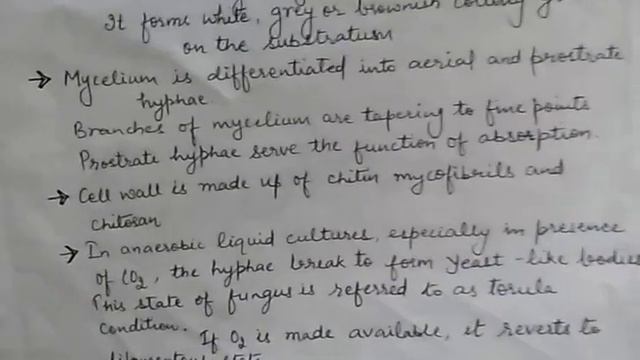 It forms white, grey or brownish cottony
on the substratum
→ Mycelium is differentiated into aerial and prostrate
hyphae.
Branches of mycelium are tapering to fine points
Prostrate hyphae serve the function of absorption.
→ Cell wall is made up of chitin mycofibrils and
chitosan
→ In anaerobic liquid cultures, especially in presence
of CO2, the hyphae break to form yeast-like bodies
This state of fungus is referred to as torula
condition. If O2 is made available, it reverts to
filamentous state